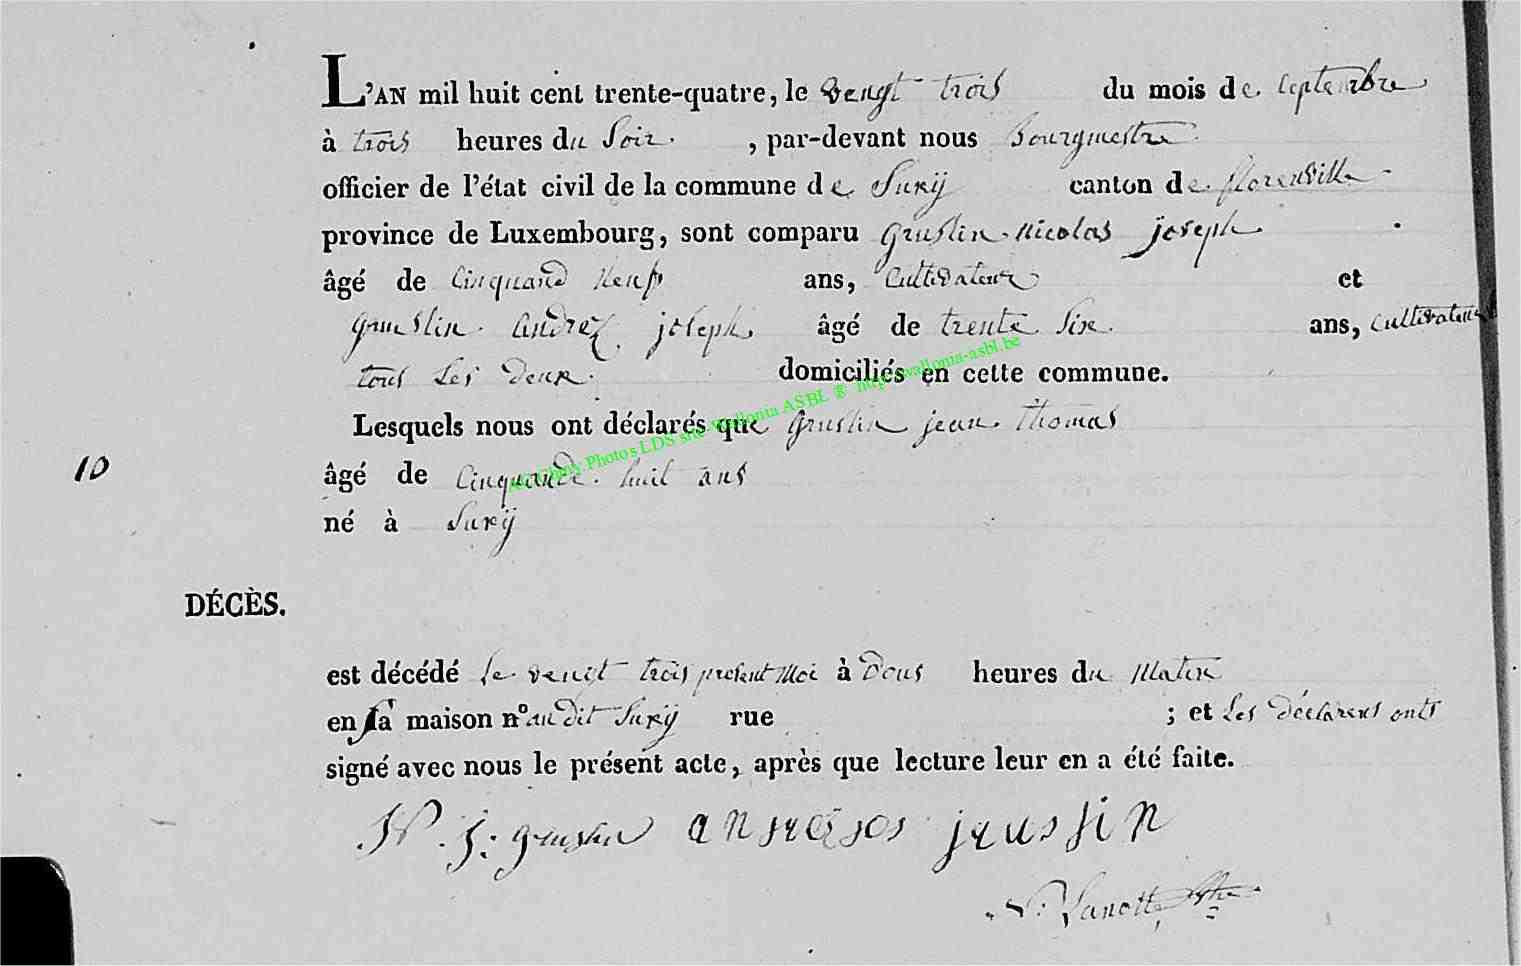 L'AN mil huit cent trente-quatre, le vengt trois du mois de septembre
à trois heures du Soir. , par-devant nous Bourgmestre
officier de l'état civil de la commune de Suxÿ canton de florenville
province de Luxembourg, sont comparu gruslin Nicolas joseph
âgé de Cinquand Neuf ans, Cultivateur et
gruslin andrez joseph âgé de trente Six ans, Cultivateur
tous Les deux domiciliés en cette commune.
Lesquels nous ont déclarés que gruslin jean thomas
10
âgé de Cinquande huit ans
né à Suxÿ
DÉCÈS.
est décédé le vengt trois present Moi à dous heures du Matin
en sa maison n° au dit Suxÿ rue ; et Les déclarens onts
signé avec nous le présent acte, après que lecture leur en a été faite.
N. j: gruslin
http://wallonia-asbl.be
Photos LDS site Wallonia ASBL @